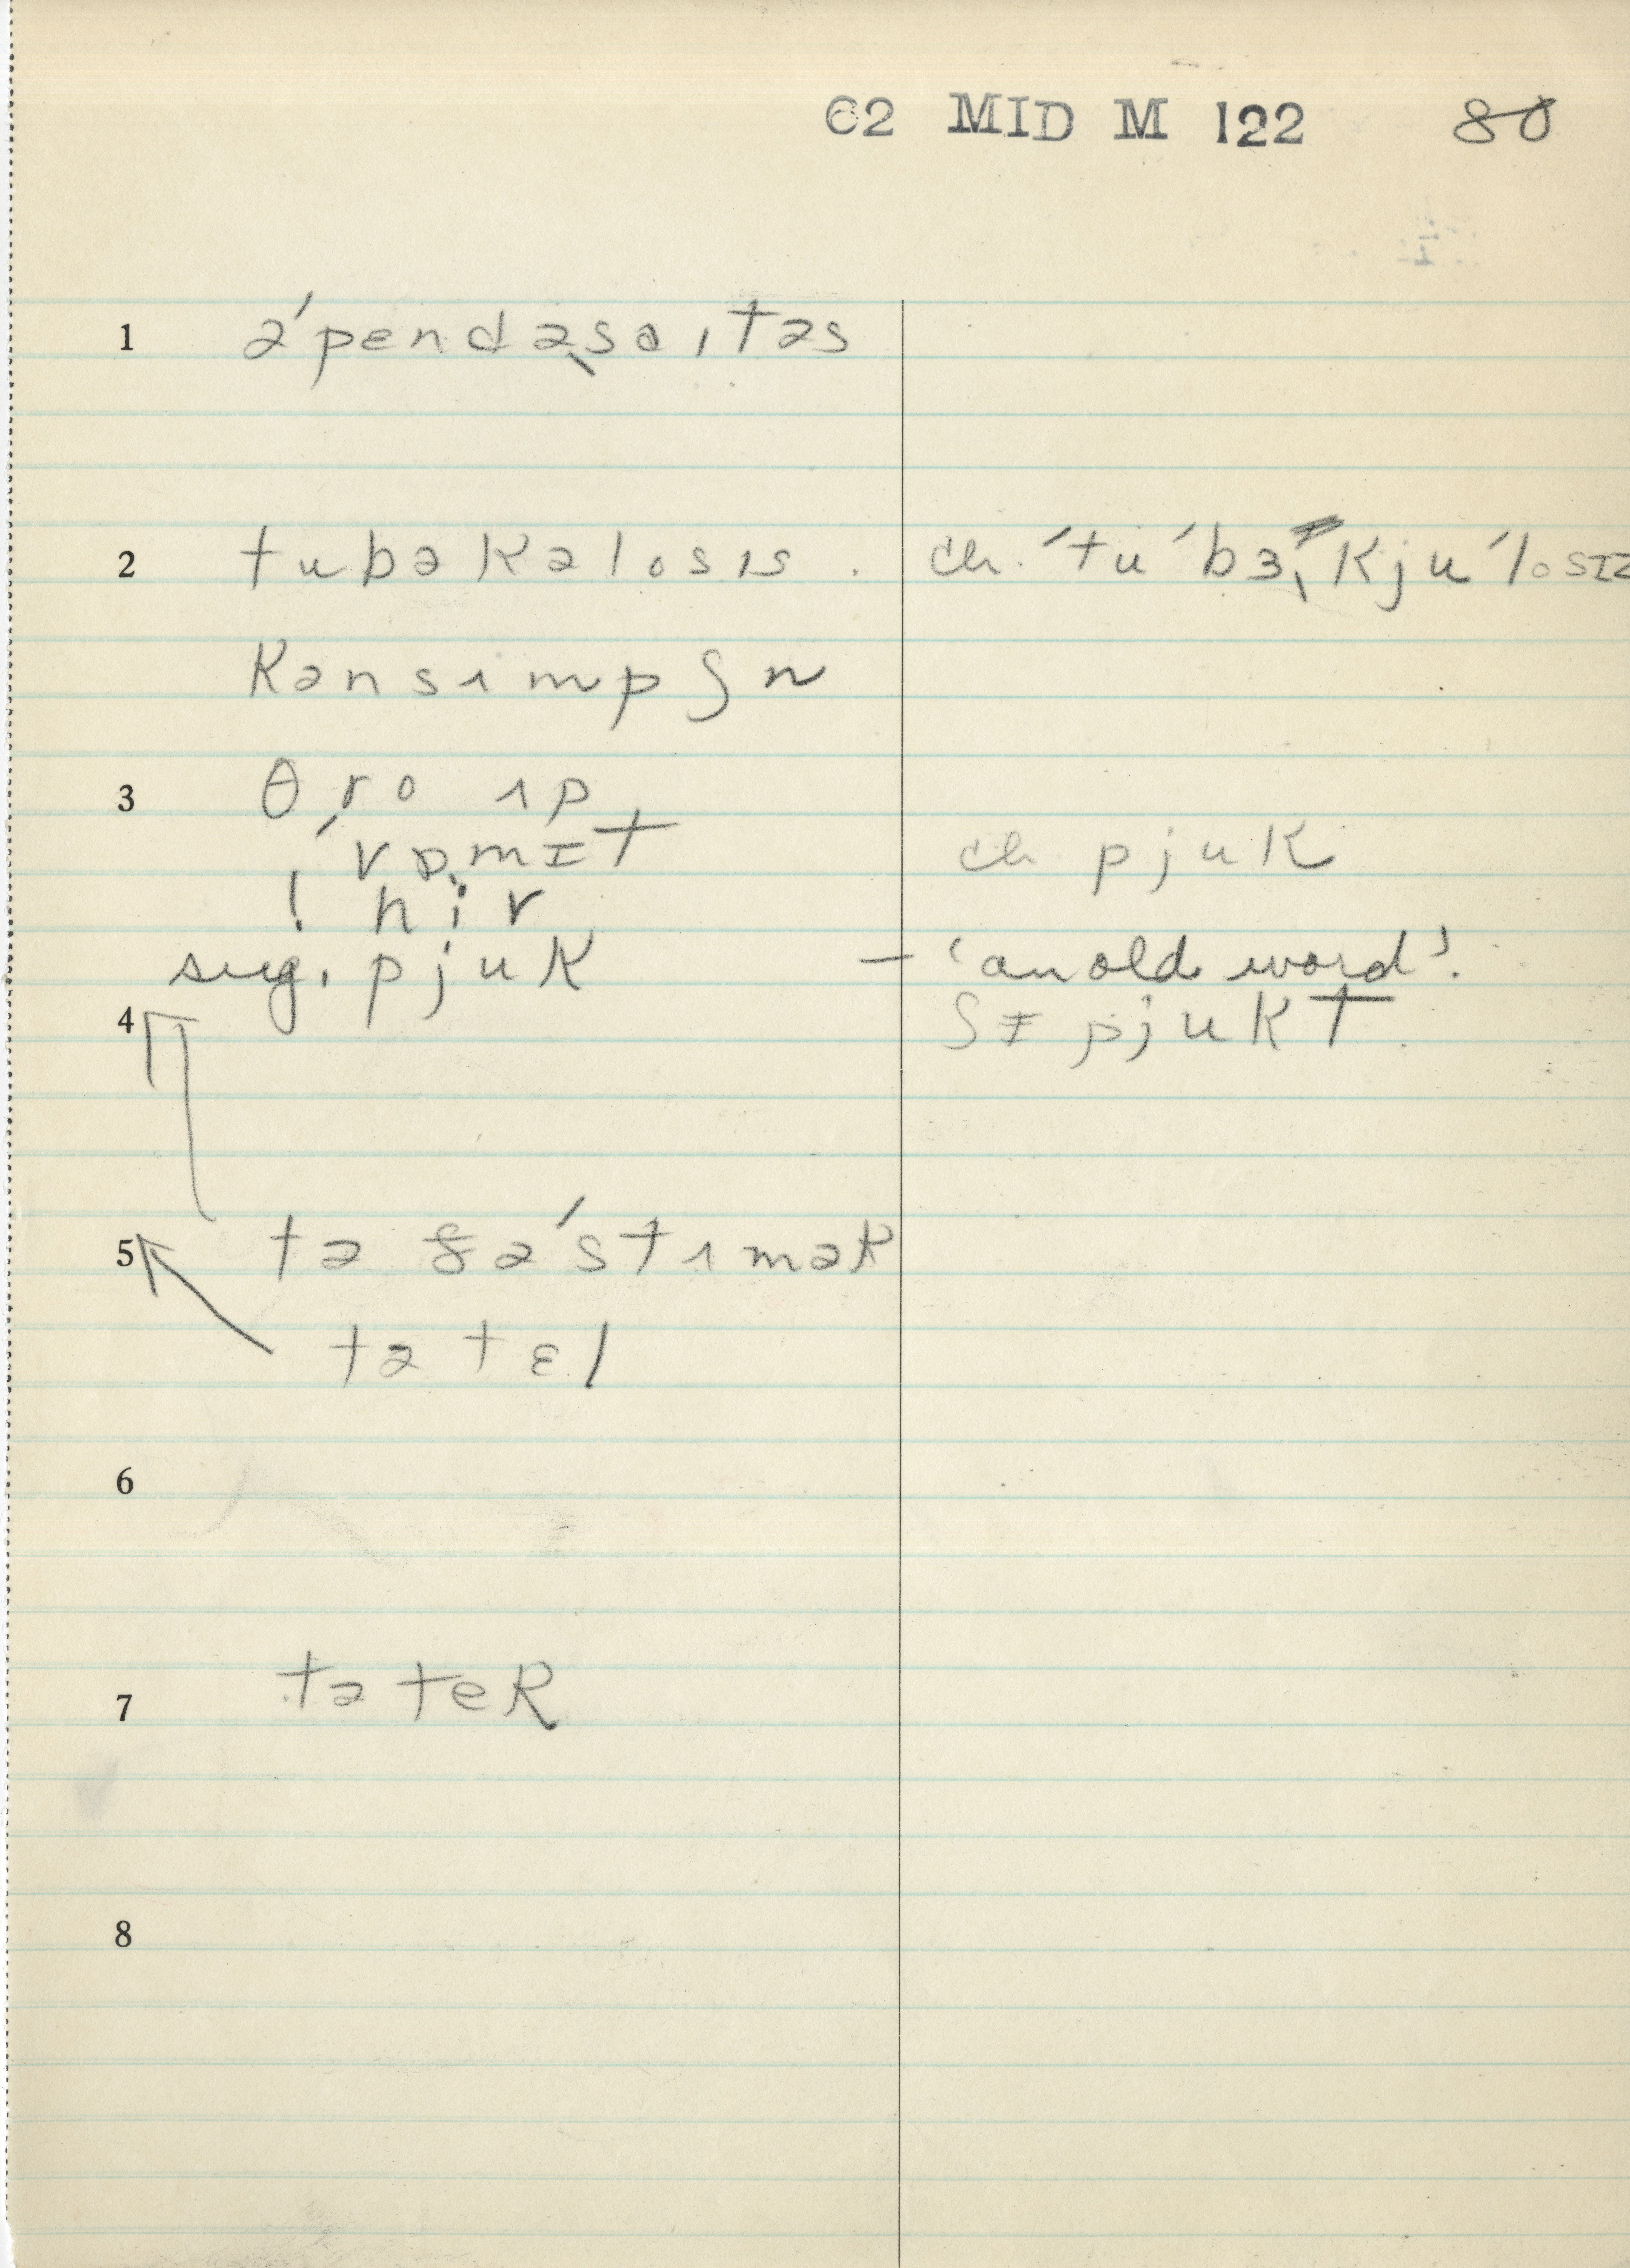 62 MID M 122 80
1 ə́pendəsaɪtəs
2 tubəkəlosɪs . ch. 'tu'bɜ,kju'losɪz
kənsɪmpʃn
3 θro ɪp
'vɒmɪt ch pjuk
! hiv
sug. pjuk – 'an old word'.
4 ʃɪ pjukt.
5 tə ðə́stɪmək
tə tɛl
6
7 tə teR
8